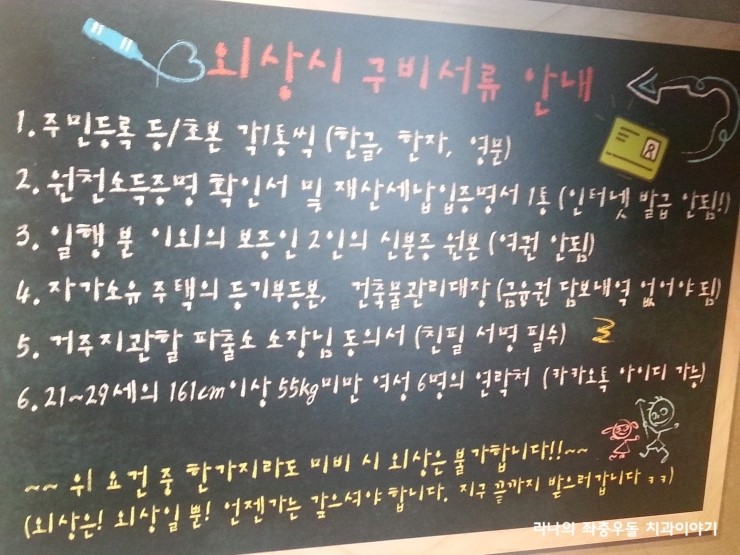 외상시 구비서류 안내
1. 주민등록 등/초본 각1통씩 (한글, 한자, 영문)
2. 원천소득증명 확인서 및 재산세납입증명서 1통 (인터넷 발급 안됨!)
3. 일행 분 이외의 보증인 2인의 신분증 원본 (여권 안됨)
4. 자가소유 주택의 등기부등본, 건축물관리대장 (금융권 담보내역 없어야 됨)
5. 거주지관할 파출소 소장님 동의서 (친필 서명 필수)
6. 21~29세의 161cm이상 55kg미만 여성 6명의 연락처 (카카오톡 아이디 가능)
~~ 위 요건 중 한가지라도 미비 시 외상은 불가합니다!!~~
(외상은! 외상일 뿐! 언젠가는 갚으셔야 합니다. 지구 끝까지 받으러갑니다 ㅋㅋ)
라나의 좌충우돌 치과이야기